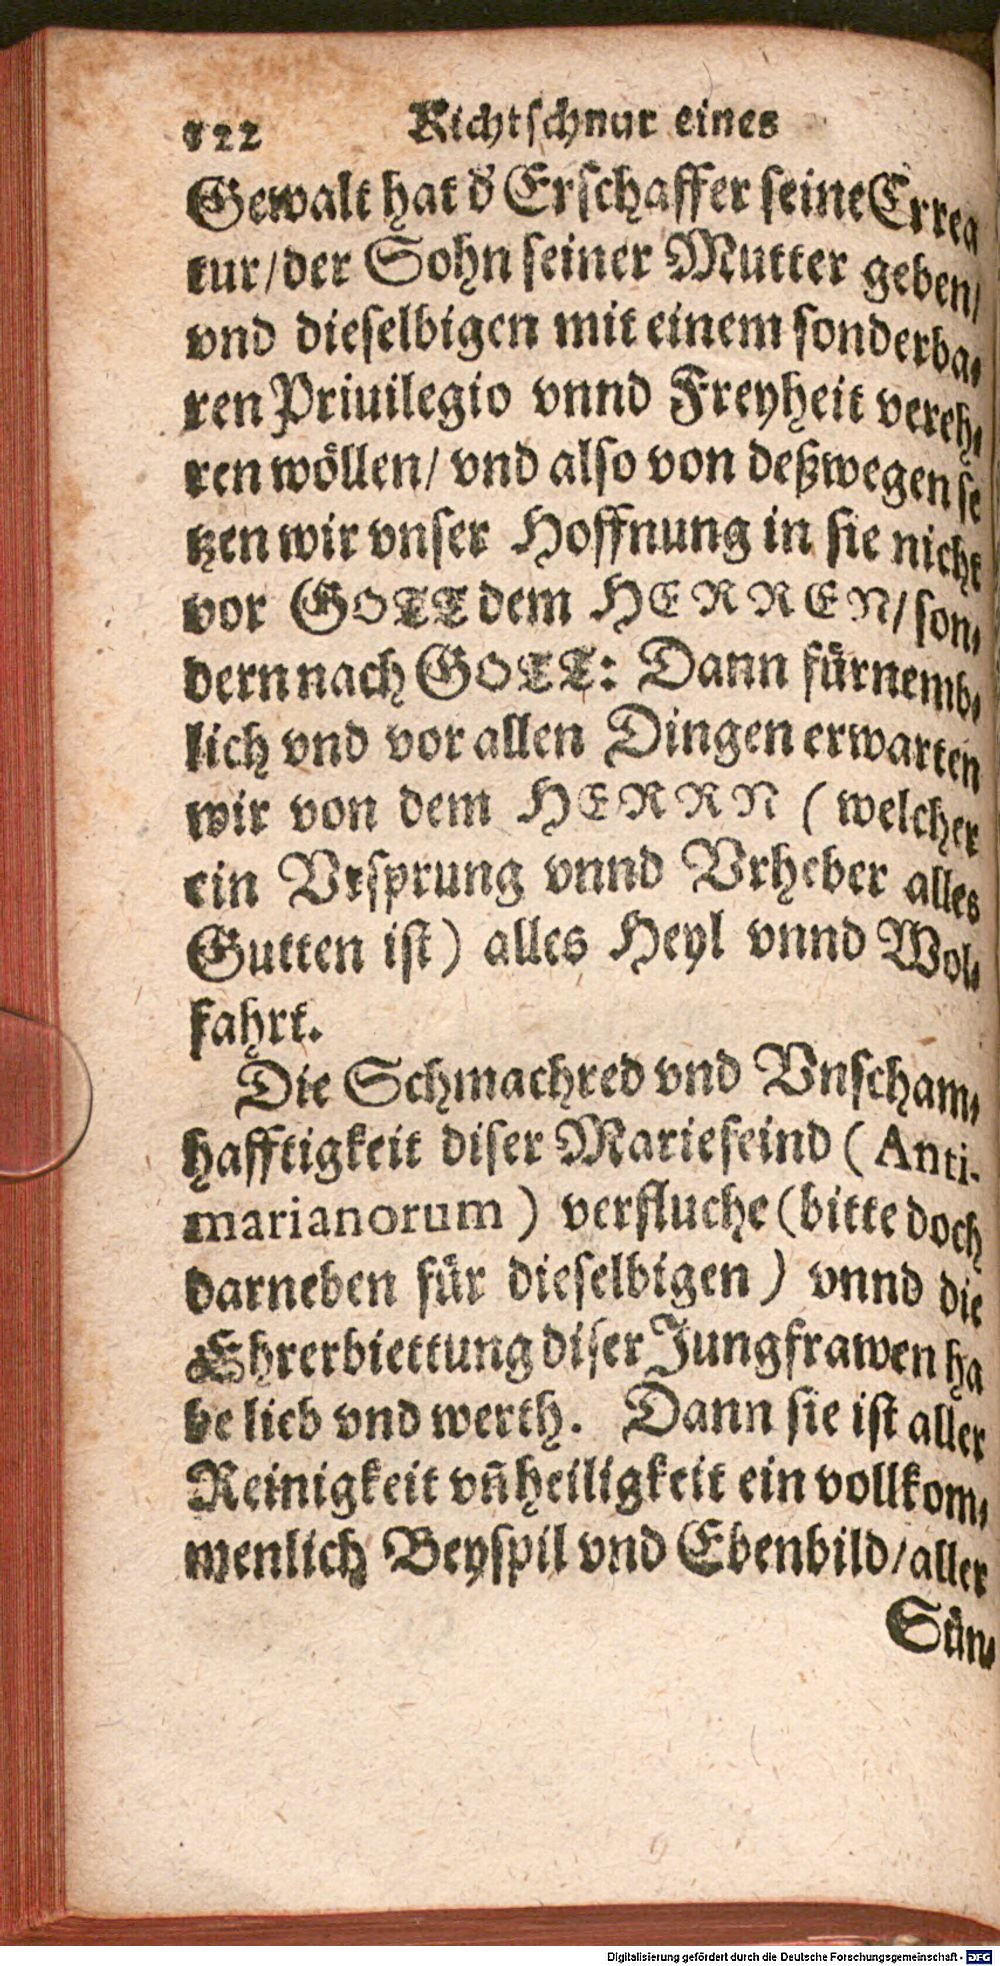 122 Richtschnur eines
Gewalt hat d' Erschaffer seine Errea
tur/der Sohn seiner Mutter geben/
vnd dieselbigen mit einem sonderba-
ren Priuilegio vnnd Freyheit vereh-
ren wöllen/ vnd also von deßwegen se
tzen wir vnser Hoffnung in sie nicht
vor GOTT dem HERREN/ son-
dern nach GOTT: Dann fürnemb-
lich vnd vor allen Dingen erwarten
wir von dem HERRN (welcher
ein Vrsprung vnnd Vrheber alles
Gutten ist) alles Heyl vnnd Wol-
fahrt.
Die Schmachred vnd Vnscham-
hafftigkeit diser Marieseind (Anti-
marianorum) verfluche (bitte doch
darneben für dieselbigen) vnnd die
Ehrerbiettung diser Jungfrawen ha
be lieb vnd werth. Dann sie ist aller
Reinigkeit vñ heiligkeit ein vollkom-
menlich Beyspil vnd Ebenbild/aller
Sün-
Digitalisierung gefördert durch die Deutsche Forschungsgemeinschaft - DFG